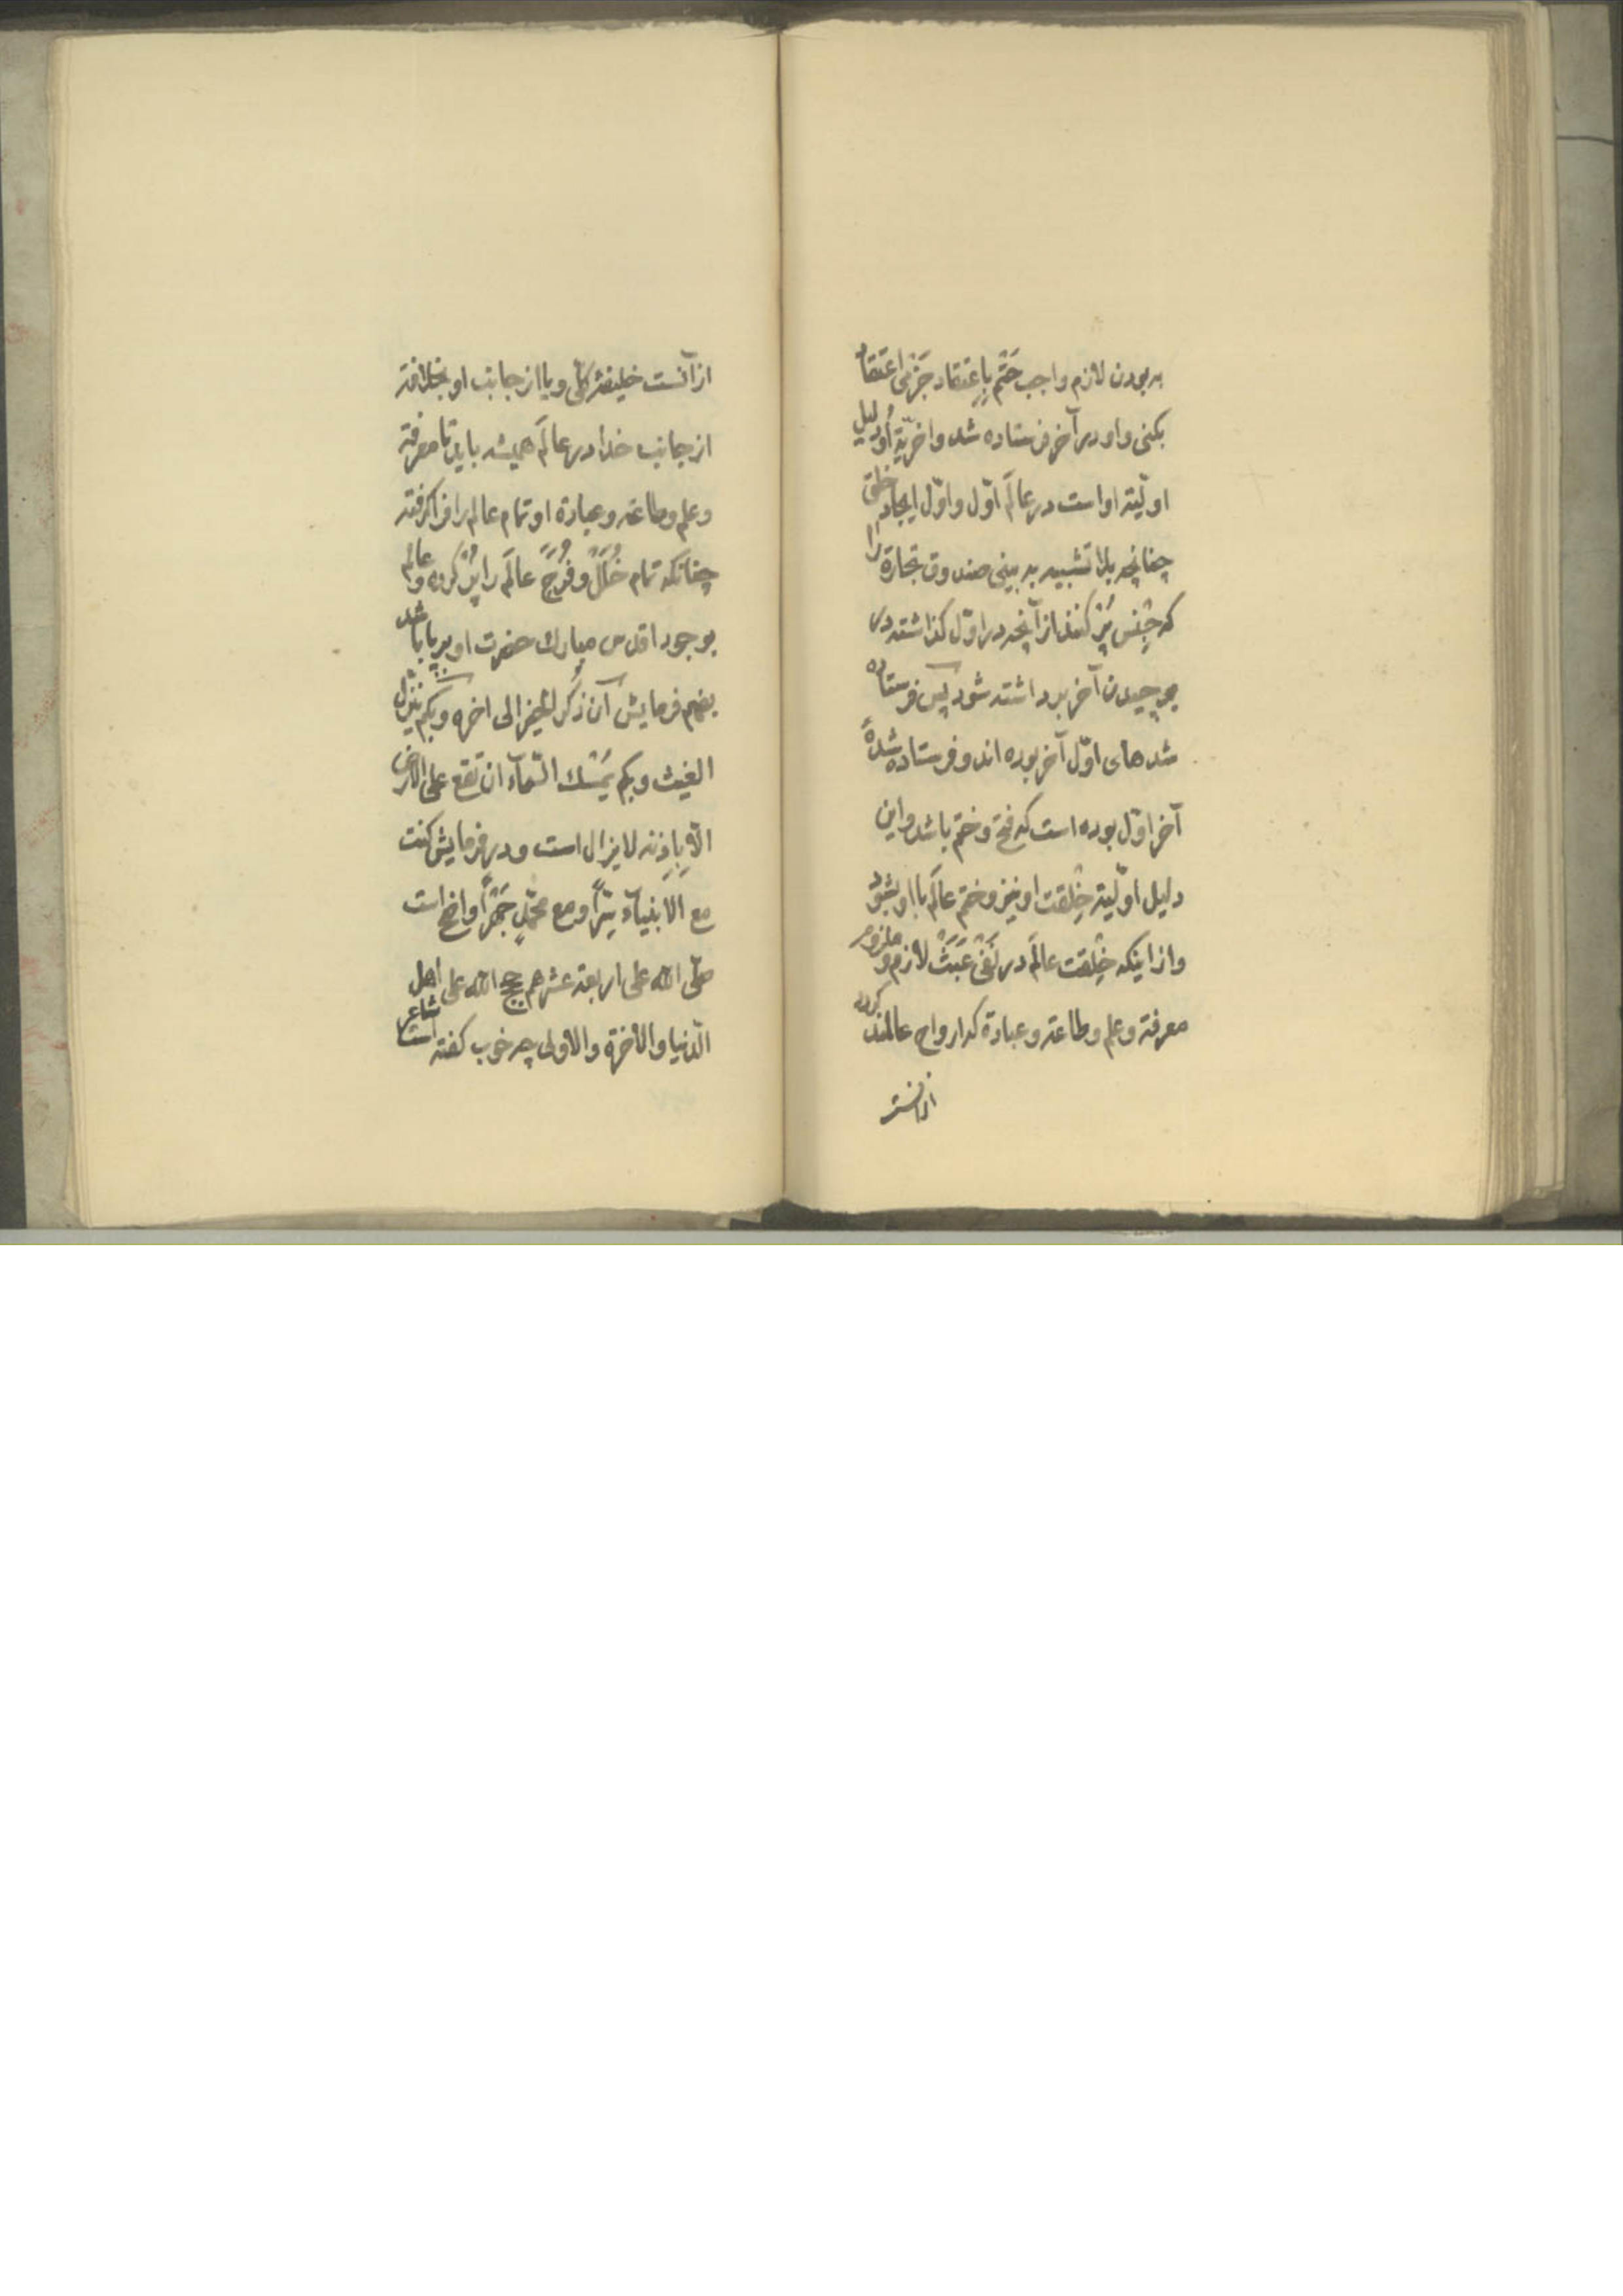 به بودن لازم واجب حَتْم باعتقاد جَزْمی اعتقاد
بکنی و او در آخر فرستاده شد و اخریّة اُو دلیل
اولّیة او است در عالَم اوّل و اوّل ایجاد خلق
چنانچه بلا تشبیه به بینی صندوق تجارة را
که جِنْس پُرْ کنند از آنچه در اوّل کذاشته در
بر چیدن آخر برداشته شود پس فرستاده
شدهای اوّل آخر بوده اند و فرستاده شدهٔ
آخر اوّل بوده است که فتح و ختم باشد و این
دلیل اولّیة خِلْقت او نیز و ختم عالَم با او بشود
و از اینکه خِلْقت عالَم در نَفْیِ عَبَثْ لازم و ملزوم
معرفة و علم و طاعة و عبادة که ارواح عالمند کرده
از آنست
از آنست خلیفۀ کلّی و یا از جانب او بخلافة
از جانب خدا در عالَم همیشه باید تا معرفة
و علم و طاعة و عبادة او تمام عالم را فرا کرفته
چنانکه تمام خُلَلْ و فُرَجْ عالَم را پُرْ کرده و عالم
بوجود اقدس مبارك حضرت او برپا باشد
بفهم فرمایش اَن ذُکر الخیر الی اخره و بکم ینزل
الغیث و بکم یُمْسك السّمآء ان تَقَع علی الارض
الّا بِاِذنه لا یزال است و در فرمایش کنت
مع الانبیآء سِرّاً و مع محمّدٍ جَهْراً واضح است
صلّی الله علی اربعة عشر هم حجج الله علی اهل
الدّنیا والاخرة والاولی چه خوب کفته است شاعر